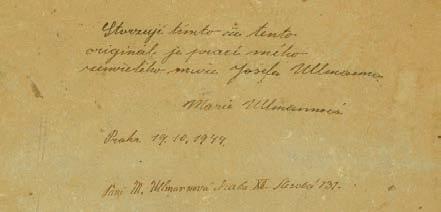 Stvrzuji tímto že tento
originál je prací mého
zemřelého muže Josefa Ullmanna
Marie Ullmannová
Praha 19.10.1944.
Paní M. Ullmannová Praha XII. 737.